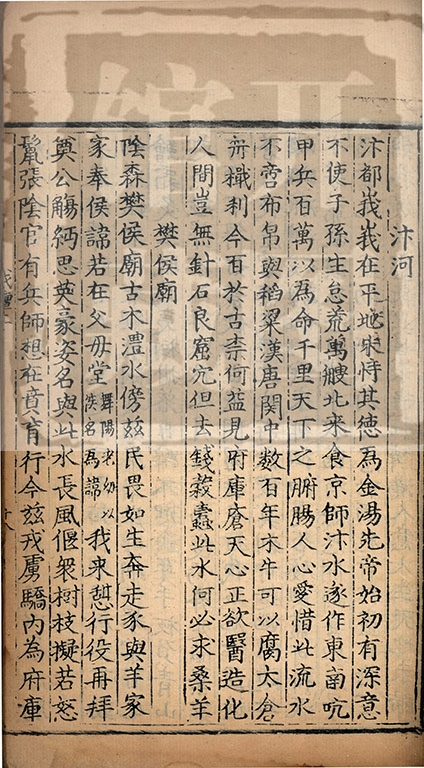 汴河
汴都峩峩在平地宋恃其德為金湯先帝始初有深意
不使子孫生怠荒萬艘北来食京師汴水遂作東南吭
甲兵百萬以為命千里天下之腑腸人心愛惜此流水
不啻布帛與稻粱漢唐関中數百年木牛可以腐太倉
舟檝利今百於古柰何益見府庫瘡天心正欲醫造化
人間豈無針石良窟宂但去錢穀蠹此水何必求桑羊
樊侯廟
陰森樊侯廟古木澧水傍兹民畏如生奔走豕與羊家
家奉侯諱若在父毋堂舞陽老幼以侯名為諱我来愬行役再拜
奠公觴緬思英豪姿名與此水長風偃衆樹枝擬若怒
鬣張陰官有兵師想在賁育行今兹戎虜驕內為府庫